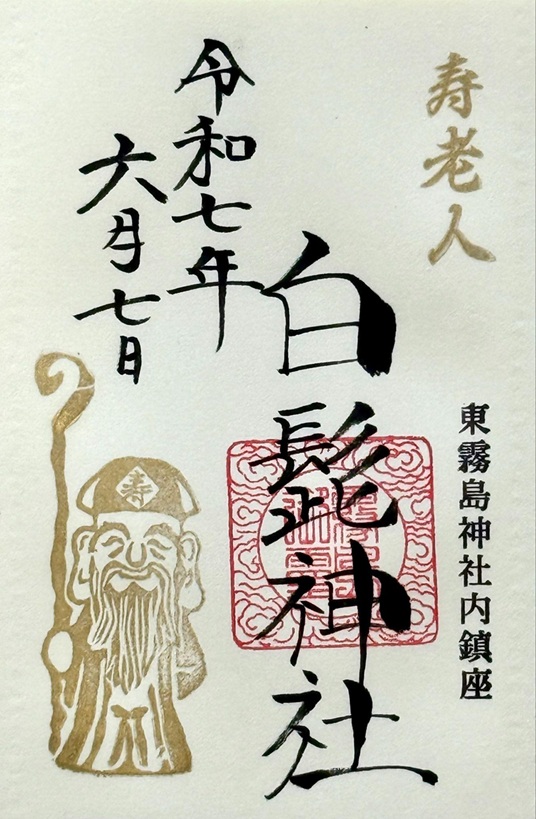 寿老人
東霧島神社内鎮座
白髭神社
令和七年
六月七日
寿